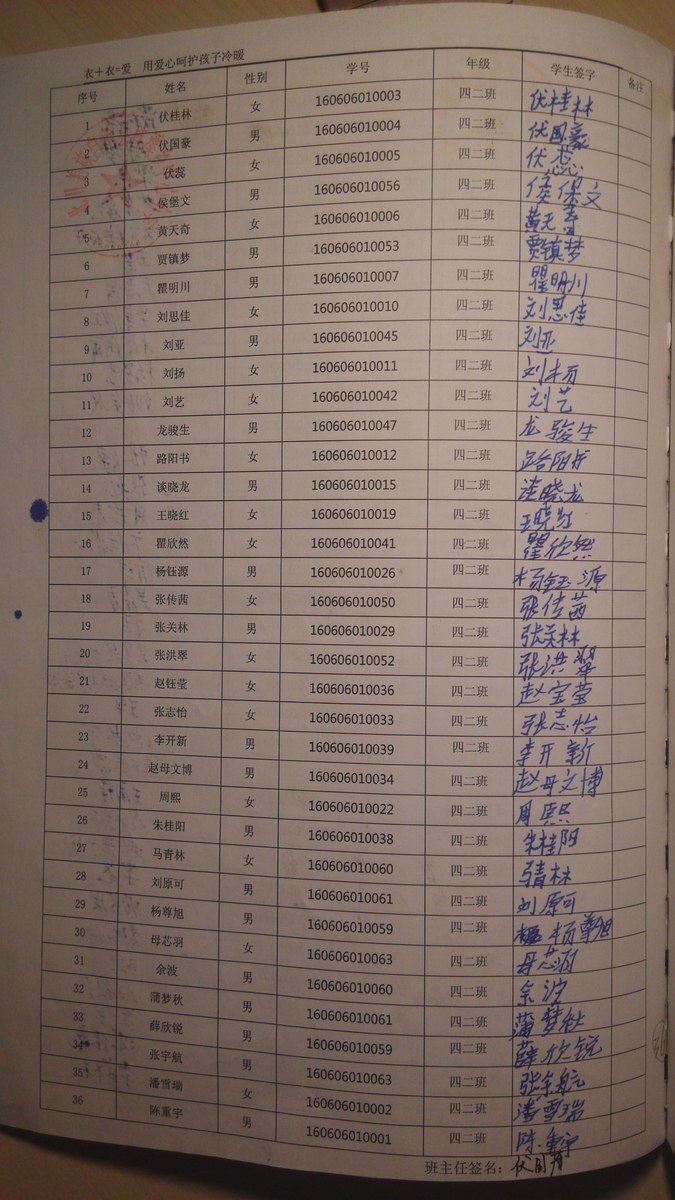 衣+衣=爱 用爱心呵护孩子冷暖
序号 姓名 性别 学号 年级 学生签字 备注
1 伏桂林 女 160606010003 四二班 伏桂林
2 伏国豪 男 160606010004 四二班 伏国豪
3 伏蕊 女 160606010005 四二班 伏蕊
4 侯堡文 男 160606010056 四二班 侯保文
5 黄天奇 女 160606010006 四二班 黄天奇
6 贾镇梦 男 160606010053 四二班 贾镇梦
7 瞿明川 男 160606010007 四二班 瞿明川
8 刘思佳 女 160606010010 四二班 刘思佳
9 刘亚 男 160606010045 四二班 刘亚
10 刘扬 女 160606010011 四二班 刘杨
11 刘艺 女 160606010042 四二班 刘艺
12 龙骏生 男 160606010047 四二班 龙骏生
13 路阳书 女 160606010012 四二班 路阳书
14 谈晓龙 男 160606010015 四二班 谈晓龙
15 王晓红 女 160606010019 四二班 王晓红
16 瞿欣然 女 160606010041 四二班 瞿欣然
17 杨钰源 男 160606010026 四二班 杨钰源
18 张传茜 女 160606010050 四二班 张传茜
19 张关林 男 160606010029 四二班 张关林
20 张洪翠 女 160606010052 四二班 张洪翠
21 赵钰莹 女 160606010036 四二班 赵宝莹
22 张志怡 女 160606010033 四二班 张志怡
23 李开新 男 160606010039 四二班 李开新
24 赵母文博 男 160606010034 四二班 赵母文博
25 周熙 女 160606010022 四二班 周熙
26 朱桂阳 男 160606010038 四二班 朱桂阳
27 马青林 女 160606010060 四二班 青林
28 刘原可 男 160606010061 四二班 刘原可
29 杨尊旭 男 160606010059 四二班 杨尊旭
30 母芯羽 女 160606010063 四二班 母芯
31 余波 男 160606010060 四二班 余波
32 蒲梦秋 男 160606010061 四二班 蒲梦秋
33 薛欣锐 男 160606010059 四二班 薛欣锐
34 张宇航 男 160606010063 四二班 张宇航
35 潘雪瑞 女 160606010002 四二班 潘雪瑞
36 陈重宇 男 160606010001 四二班 陈重宇
班主任签名：伏国